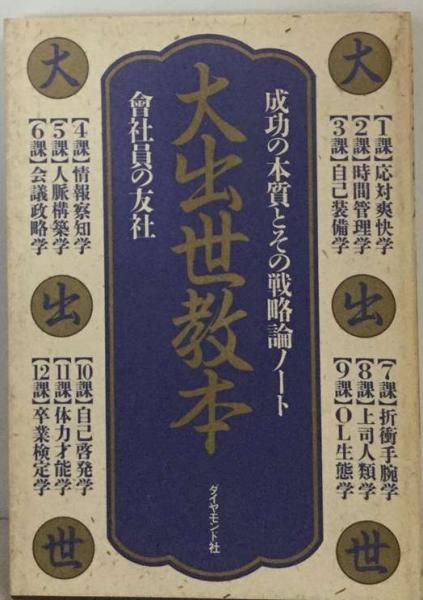 大出世教本
成功の本質とその戦略論ノート
會社員の友社
大
出
世
【1課】応対爽快学
【2課】時間管理学
【3課】自己装備学
大
出
世
【4課】情報察知学
【5課】人脈構築学
【6課】会議政略学
【7課】折衝手腕学
【8課】上司人類学
【9課】OL生態学
【10課】自己啓発学
【11課】体力才能学
【12課】卒業検定学
ダイヤモンド社